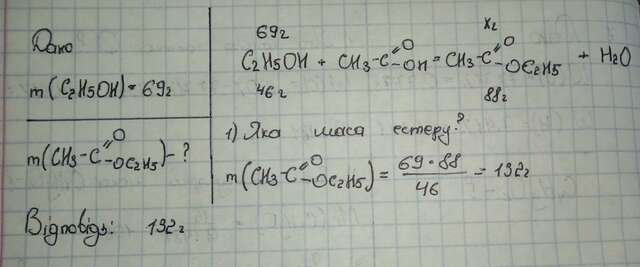 Дано
m(C2H5OH)=69г
m(CH3-C O OC2H5)-?
Відповідь: 132г
69г хг
C2H5OH + CH3-C O OH = CH3-C O OC2H5 + H2O
46г 88г
1) Яка маса естеру?
m(CH3-C O OC2H5) = 69·88 / 46 = 132г